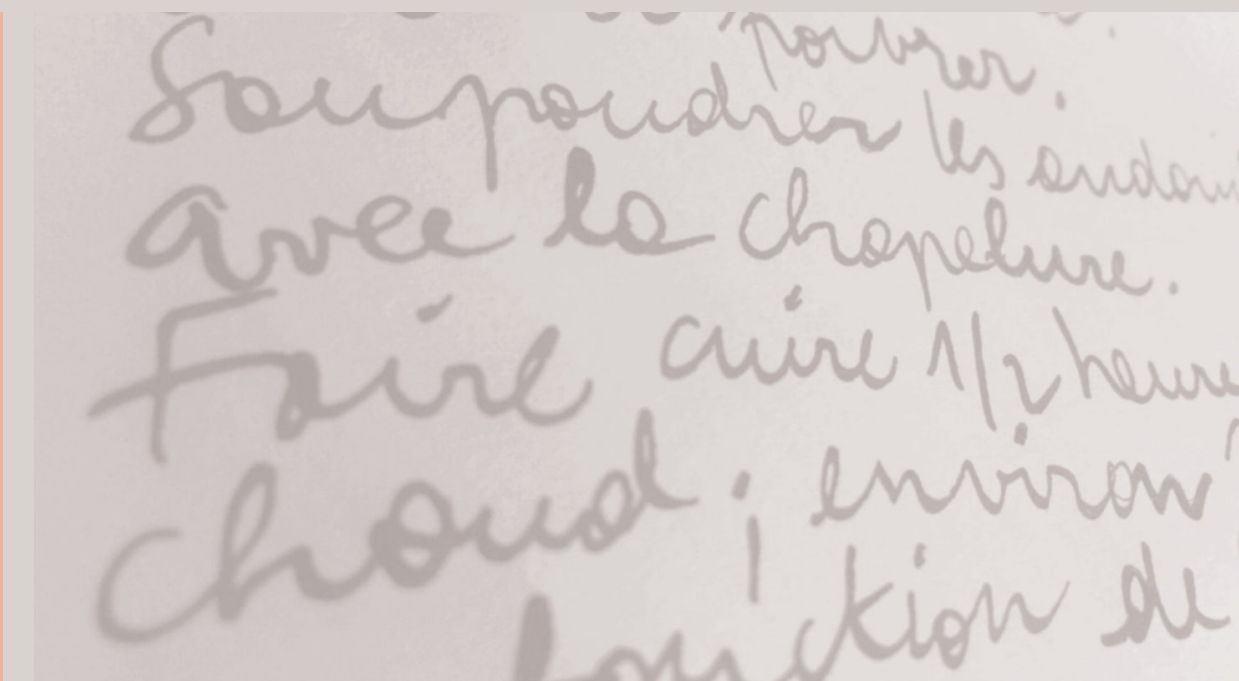 poivrer.
Saupoudrer les
avec la chapelure.
Faire cuire 1/2 heure
chaud ; environ
fonction de